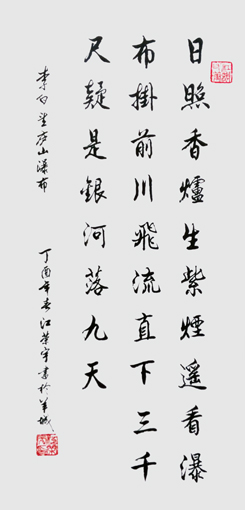 日照香爐生紫煙遙看瀑
布掛前川飛流直下三千
尺疑是銀河落九天
李白望庐山瀑布
丁酉年春江荣宇書於羊城